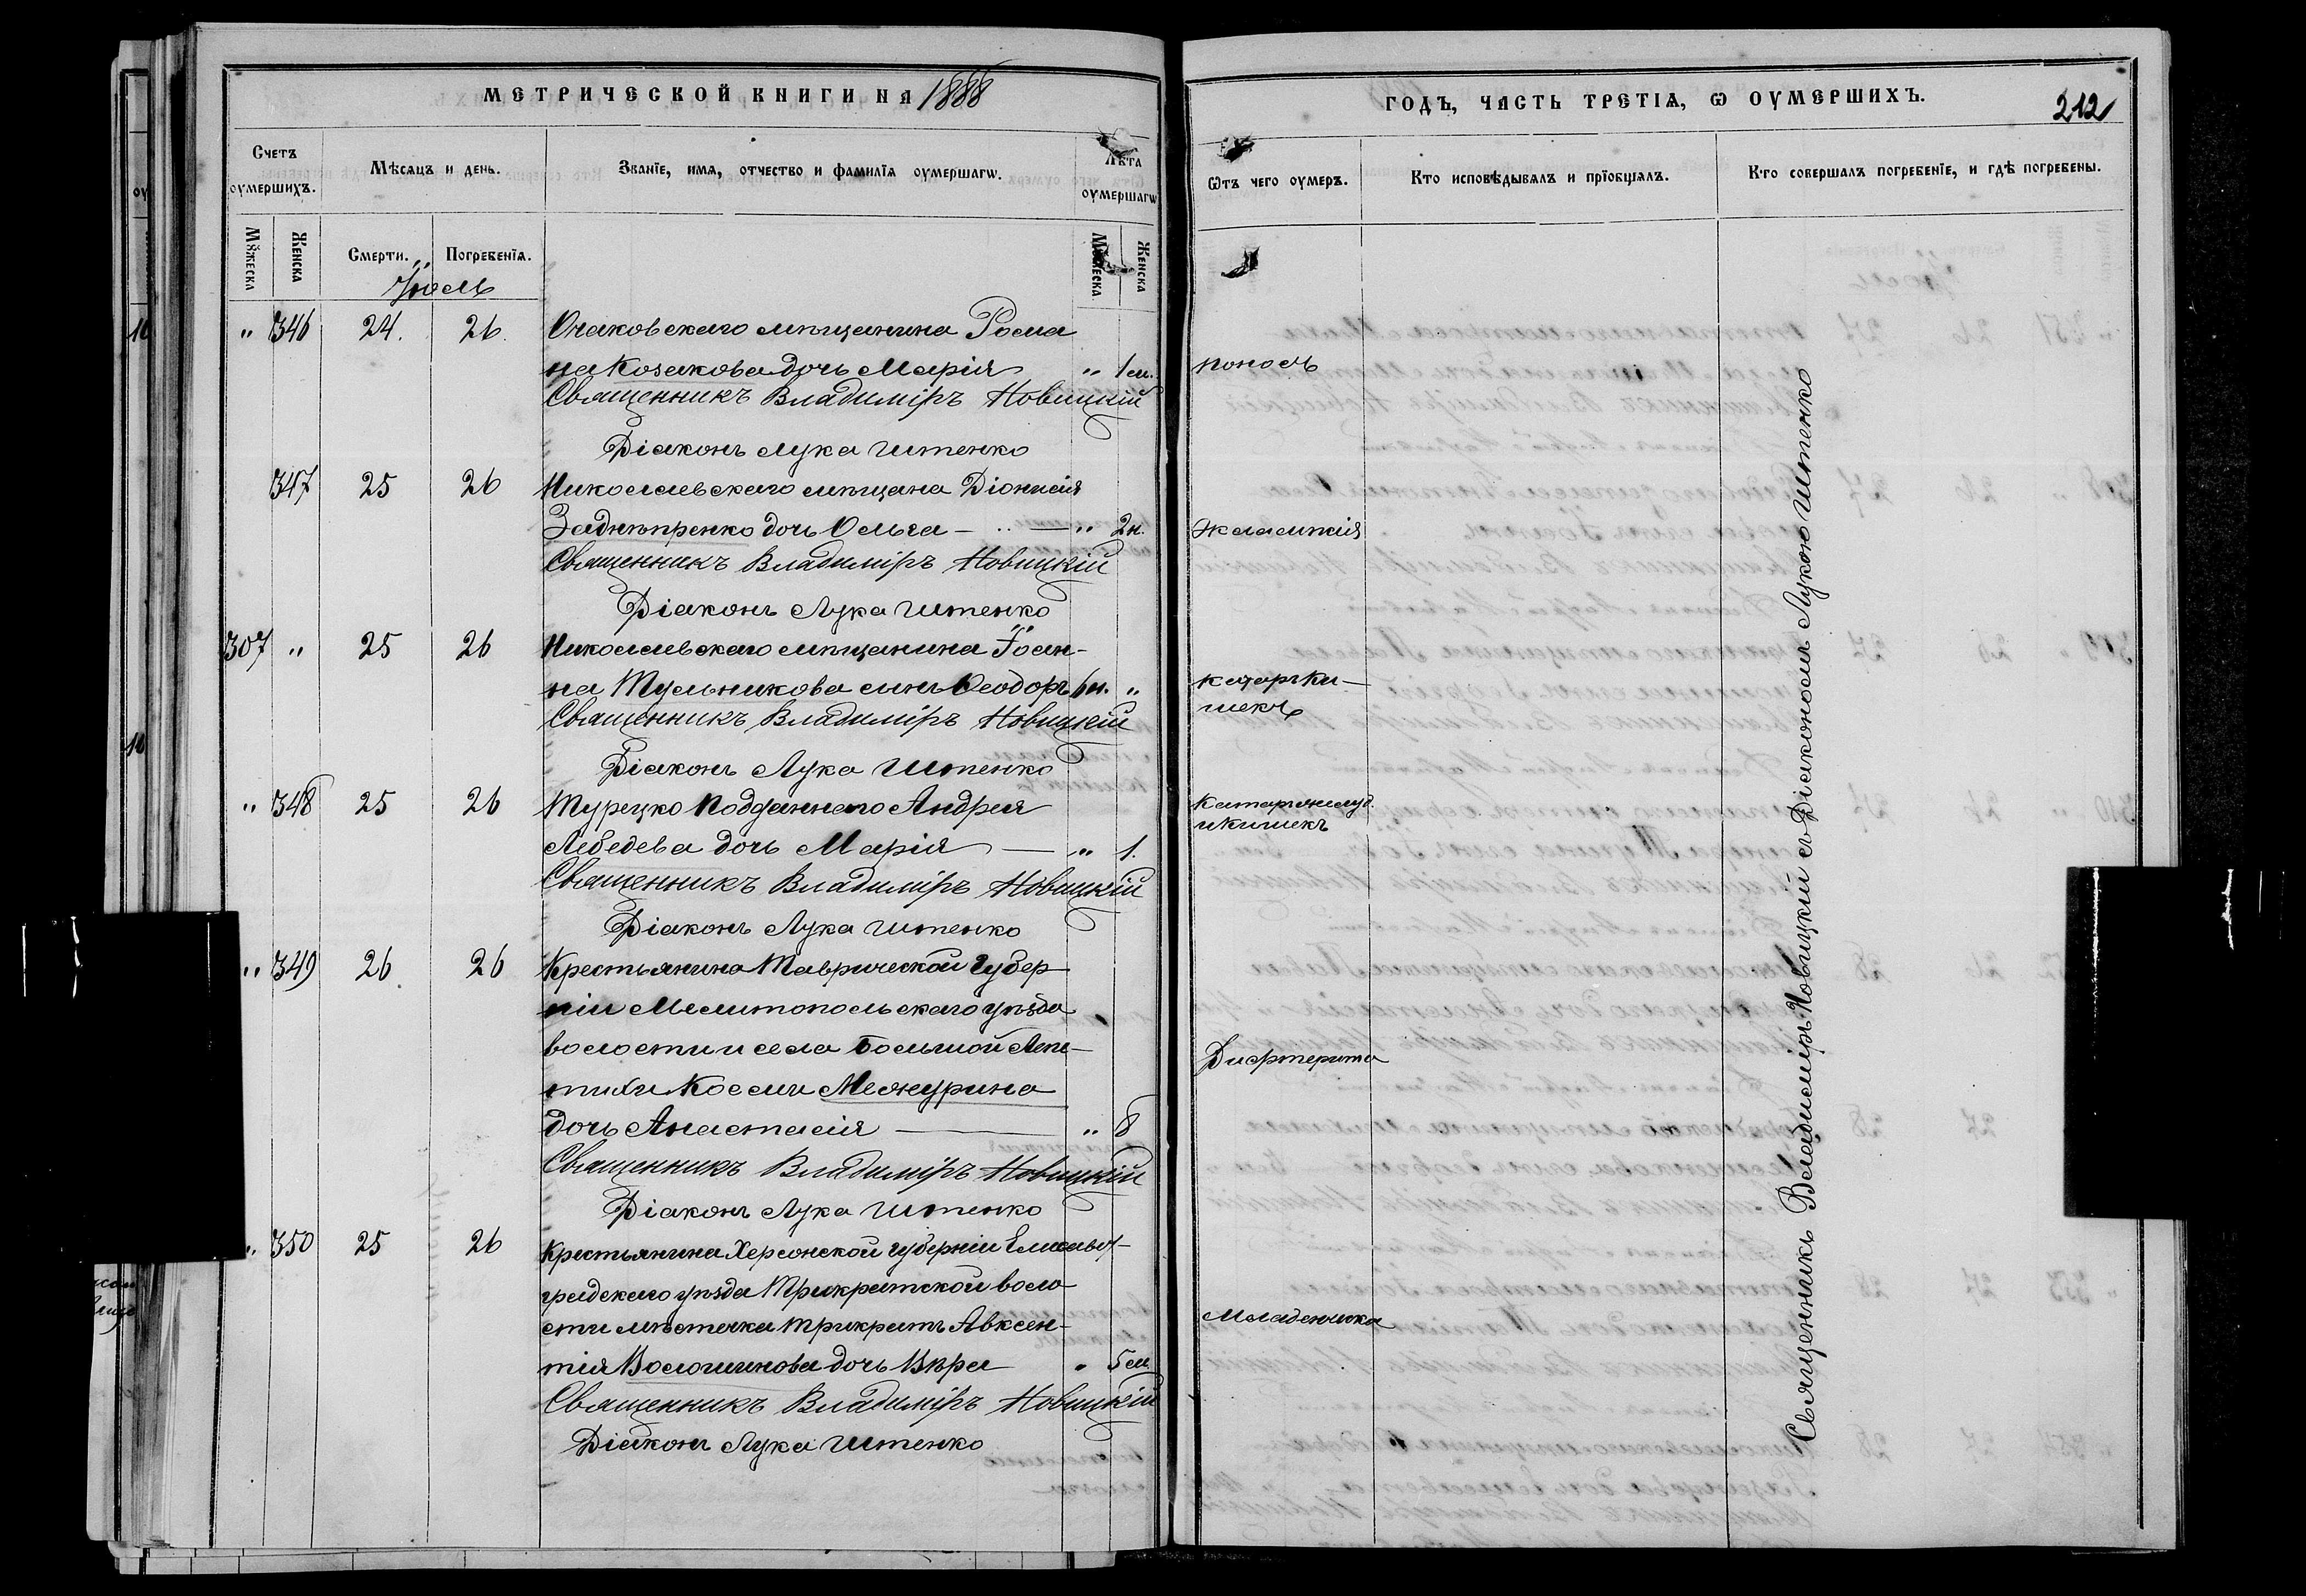 МЕТРИЧЕСКОЙ КНИГИ НА 1888
Счетъ оумершихъ.
Мѣсяцъ и день.
Званїе, имя, отчество и фамилїя оумершагѡ.
Лѣта оумершагѡ
Мꙋжеска
Женска
Смерти.
Погребенїя.
Мꙋжеска
Женска
Іюль
" 346 24. 26. Очаковскаго мѣщанина Рома
на Козакова дочь Марія " 1 м.
Священникъ Владиміръ Новицкій
Діаконъ Лука Штенко
347 25 26 Николаевскаго мѣщана Діонисія
Заднѣпренко дочь Ольга — " 2 н.
Священникъ Владиміръ Новицкій
Діаконъ Лука Штенко
307 " 25 26 Николаевскаго мѣщанина Іоан-
на Тульникова сынъ Ѳеодоръ 6 н. "
Священникъ Владиміръ Новицкій
Діаконъ Лука Штенко
" 348 25 26 Турецко подданнаго Андрея
Лебедева дочь Марія — " 1.
Священникъ Владиміръ Новицкій
Діаконъ Лука Штенко
" 349 26. 26 Крестьянина Таврической губер
ніи Мелитопольскаго уѣзда
волости и села Большой Лепе-
тихи Космы Межурина
дочь Анастасія — " 8
Священникъ Владиміръ Новицкій
Діаконъ Лука Штенко
" 350 25 26 Крестьянина Херсонской губерніи Елисавет-
градскаго уѣзда Трикратской воло
сти мѣстечка Трикратъ Авксен-
тія Волошинова дочь Вѣра " 5 м.
Священникъ Владиміръ Новицкій
Діаконъ Лука Штенко
ГОДЪ, ЧАСТЬ ТРЕТІЯ, Ѡ ОУМЕРШИХЪ.
212
Ѡтъ чего оумеръ.
Кто исповѣдывалъ и прїобщалъ.
Кто совершалъ погребенїе, и гдѣ погребены.
поносъ
эклампсія
катаръ ки-
шекъ
Катаръ желуд.
и кишекъ
Дифтерита
Младенческа
Священникъ Владиміръ Новицкій съ Діакономъ Лукою Штенко